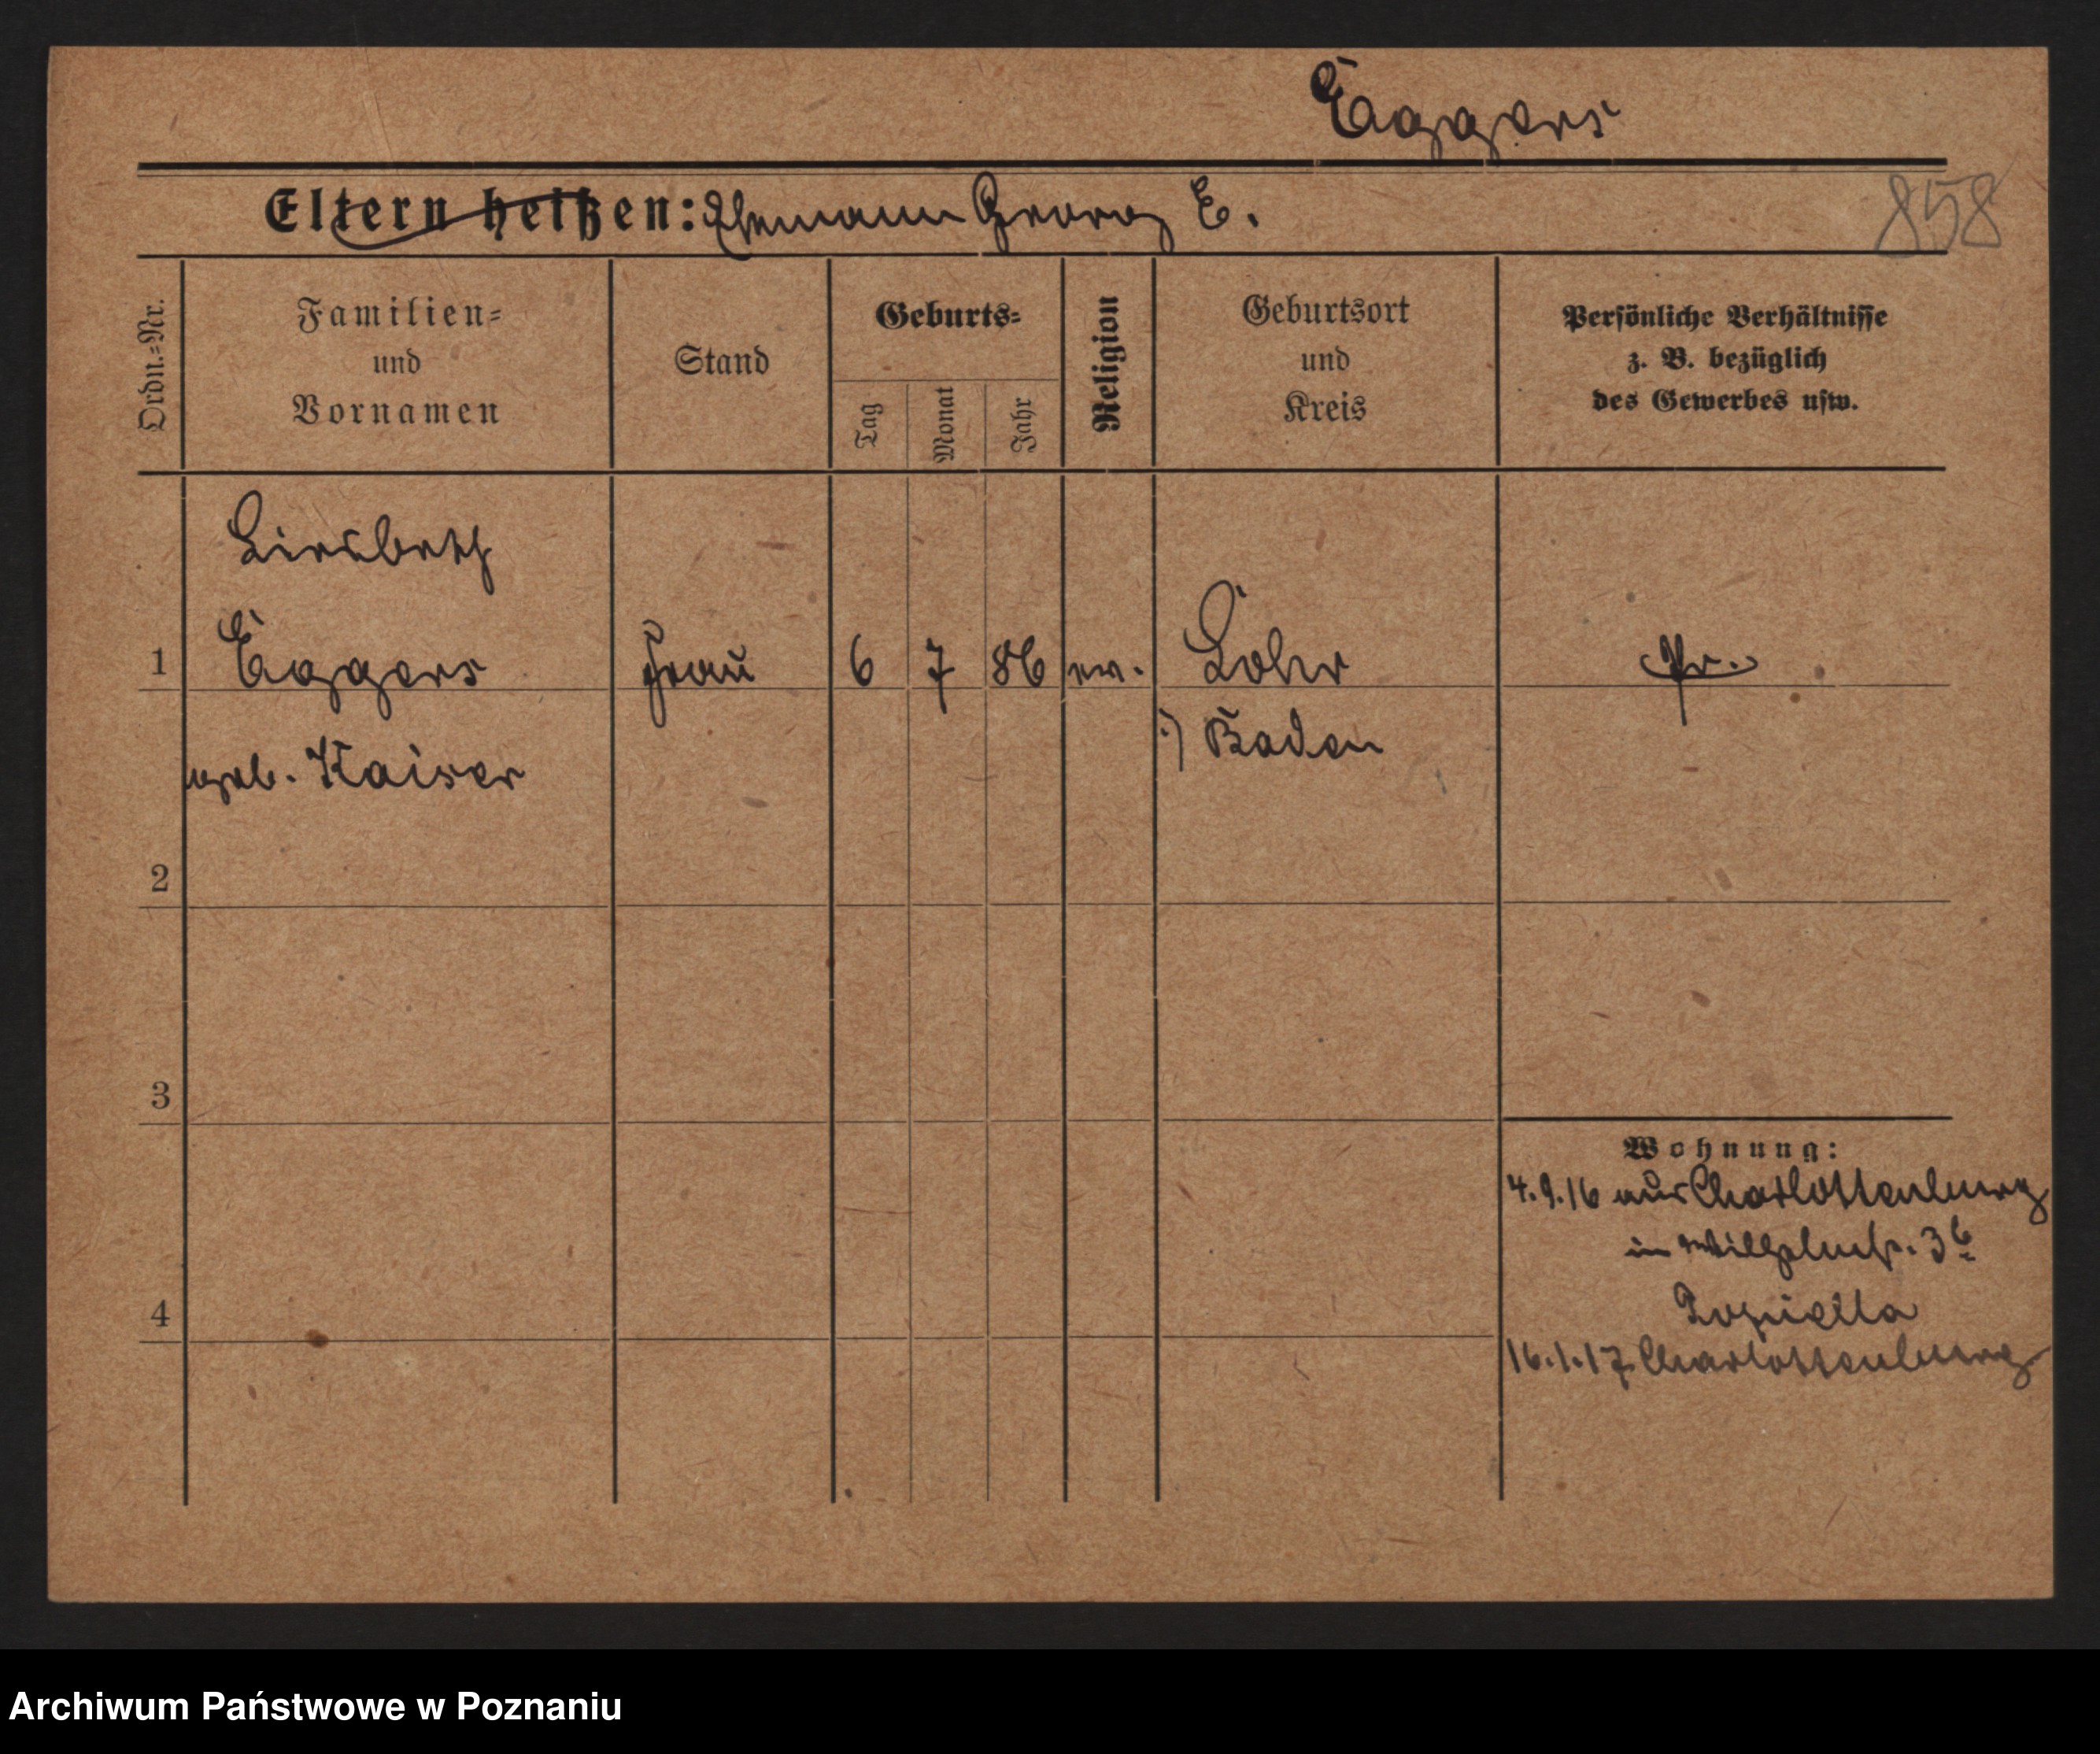 Eggers
Eltern heißen: Ehemann Georg E.
858
Ordn.=Nr.
Familien=
und
Vornamen
Stand
Geburts=
Tag
Monat
Jahr
Religion
Geburtsort
und
Kreis
Persönliche Verhältnisse
z. B. bezüglich
des Gewerbes usw.
Liesbeth
1 Eggers Frau 6 7 86 ev. Lohr Pr.
geb. Kaiser
Baden
2
3
4
Wohnung:
4.9.16 aus Charlottenburg
in Wilhelmstr. 36
16.1.17 Charlottenburg
Archiwum Państwowe w Poznaniu